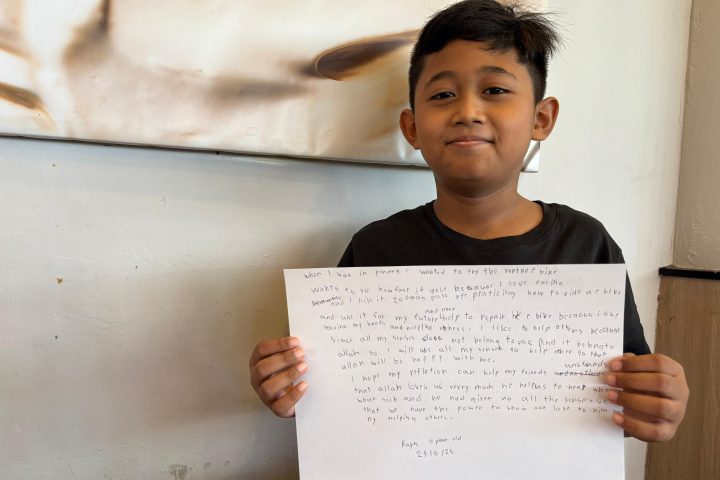 when I was in penang I wanted to try the rentable bike
wants to see how fast it gose because I love racing
and I like it zooming pass me. praticing how to ride a e bike
and use it for my future and even help to repair e bike because i like
moving my hands and helping others. I like to help others because
since all my senses does not belong to me and it belong to
allah so I will use all my senses to help other so that
allah will be happy with me.
I hope my reflation can help my friends unstands
that allah loves us very much he helpens to heal when
where sick and he had given us all the senses so
that we have the power to show our love to him
by helping others.
11 years old
25/5/25